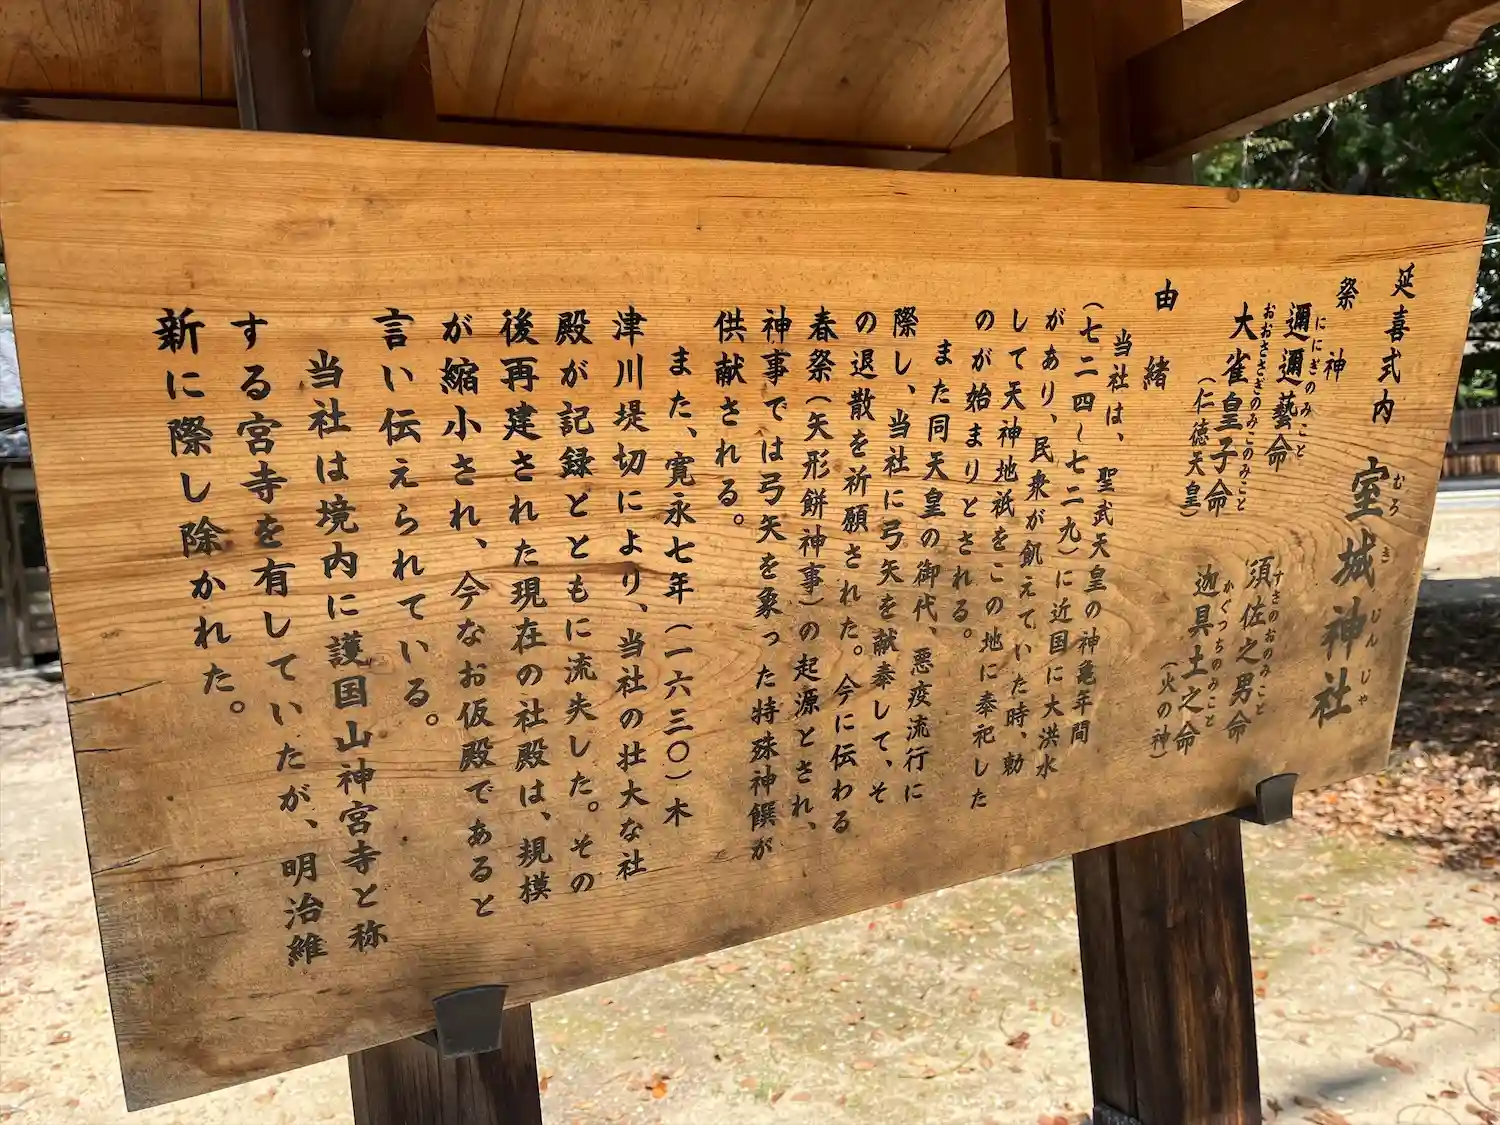 延喜式内 室城神社
むろきじんじゃ
祭神
邇邇藝命
ににぎのみこと
大雀皇子命
おおささぎのみこのみこと
（仁徳天皇）
須佐之男命
すさのおのみこと
迦具土之命
かぐつちのみこと
（火の神）
由緒
当社は、聖武天皇の神亀年間
（七二四〜七二九）に近国に大洪水
があり、民衆が飢えていた時、勅
して天神地祇をこの地に奉祀した
のが始まりとされる。
また同天皇の御代、悪疫流行に
際し、当社に弓矢を献奉して、そ
の退散を祈願された。今に伝わる
春祭（矢形餅神事）の起源とされ、
神事では弓矢を象った特殊神饌が
供献される。
また、寛永七年（一六三〇）木
津川堤切により、当社の壮大な社
殿が記録とともに流失した。その
後再建された現在の社殿は、規模
が縮小され、今なお仮殿であると
言い伝えられている。
当社は境内に護国山神宮寺と称
する宮寺を有していたが、明治維
新に際し除かれた。